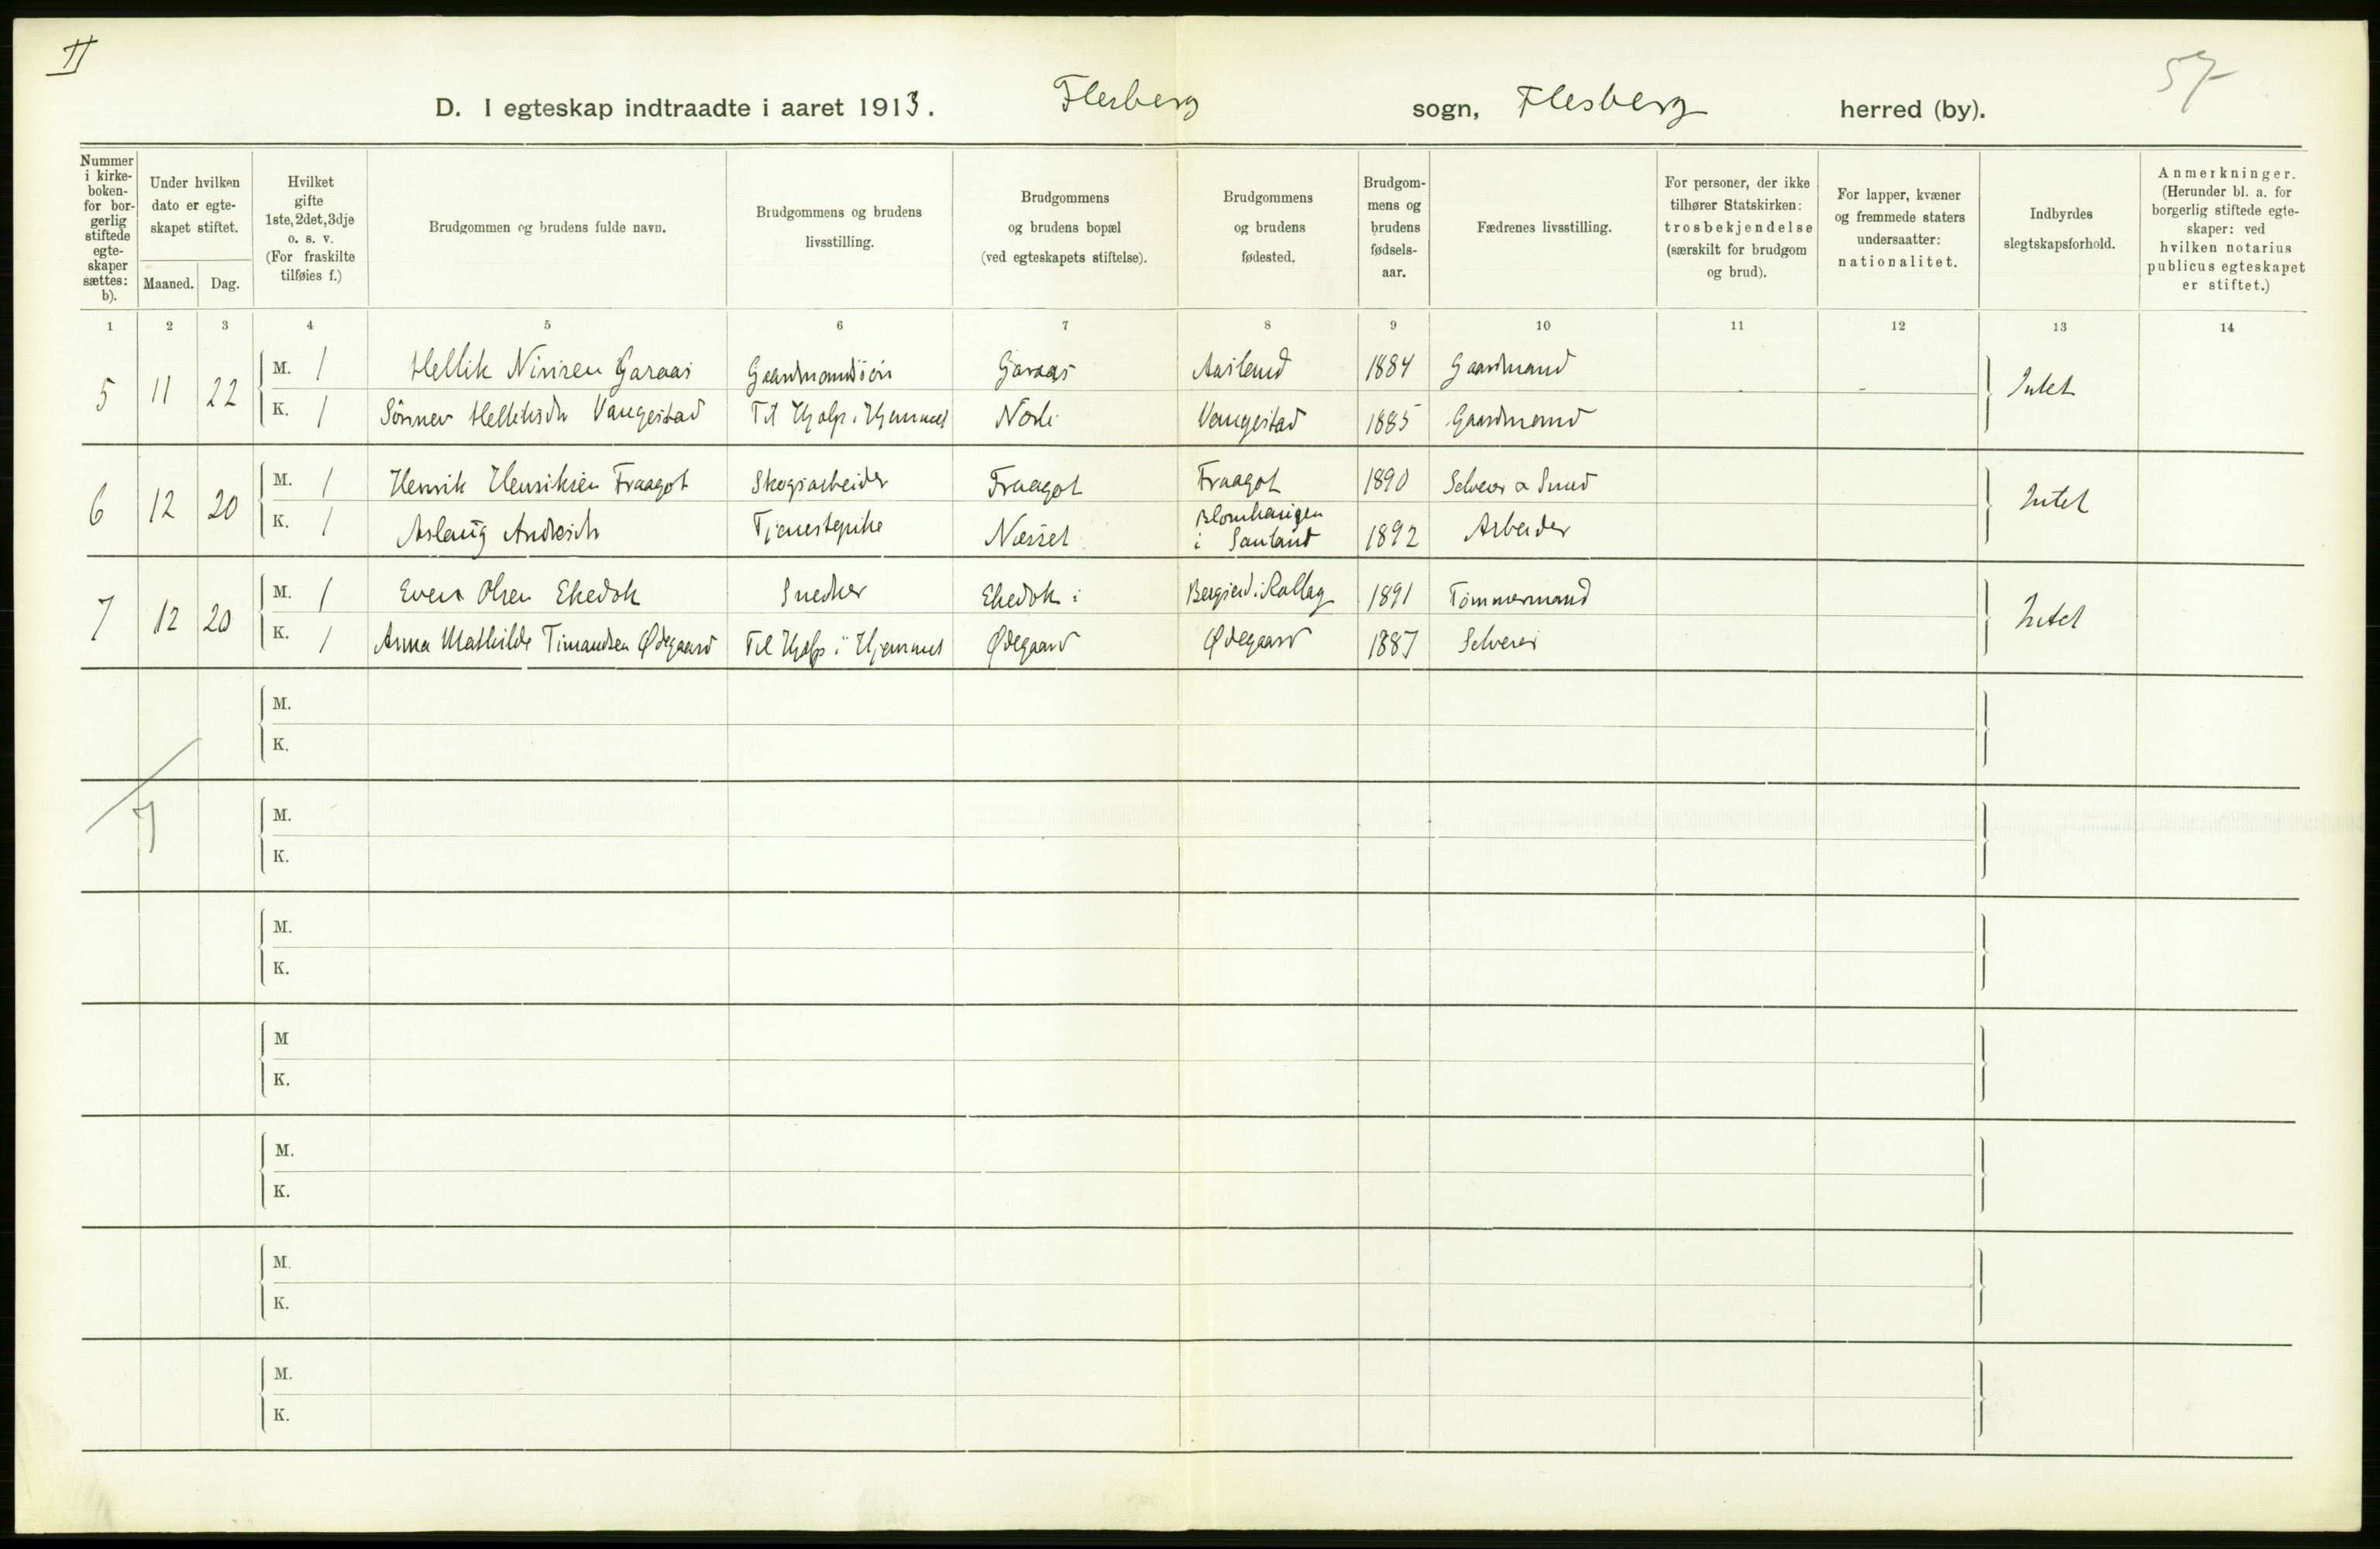 II
57
D. I egteskap indtraadte i aaret 1913. Flesberg sogn, Flesberg herred (by).
Nummer i kirke-boken- for bor-gerlig stiftede egte-skaper sættes: b).
Under hvilken dato er egte-skapet stiftet.
Maaned. Dag.
Hvilket gifte 1ste, 2det, 3dje o. s. v. (For fraskilte tilføies f.)
Brudgommen og brudens fulde navn.
Brudgommens og brudens livsstilling.
Brudgommens og brudens bopæl (ved egteskapets stiftelse).
Brudgommens og brudens fødested.
Brudgom-mens og brudens fødsels-aar.
Fædrenes livsstilling.
For personer, der ikke tilhører Statskirken: trosbekjendelse (særskilt for brudgom og brud).
For lapper, kvæner og fremmede staters undersaatter: nationalitet.
Indbyrdes slegtskapsforhold.
Anmerkninger. (Herunder bl. a. for borgerlig stiftede egte-skaper: ved hvilken notarius publicus egteskapet er stiftet.)
1 2 3 4 5 6 7 8 9 10 11 12 13 14
5 11 22 M. 1 Hellik Nirisen Garaas Gaardmandssøn Garaas Aasland 1884 Gaardmand Intet
K. 1 Vangestad Til Hjelp i Hjemmet Vangestad 1885 Gaardmand
6 12 20 M. 1 Henrik Henriksen Fraagot Skogsarbeider Fraagot Fraagot 1890 Selveier & Smed Intet
K. 1 Aslaug Tjenestepike Næsset i Sauland 1892 Arbeider
7 12 20 M. 1 Even Olsen Ekedok Snedker Ekedok i Rollag 1891 Tømmermand Intet
K. 1 Anna Mathilde Timandsen Ødegaard Til Hjelp i Hjemmet Ødegaard Ødegaard 1887 Selveier
M.
K.
7
M.
K.
M.
K.
M
K.
M.
K.
M.
K.
M.
K.